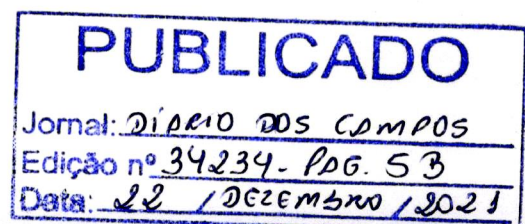 PUBLICADO
Jornal: DIÁRIO DOS CAMPOS
Edição nº 34234 - PÁG. 5B
Data: 22 / DEZEMBRO / 2021